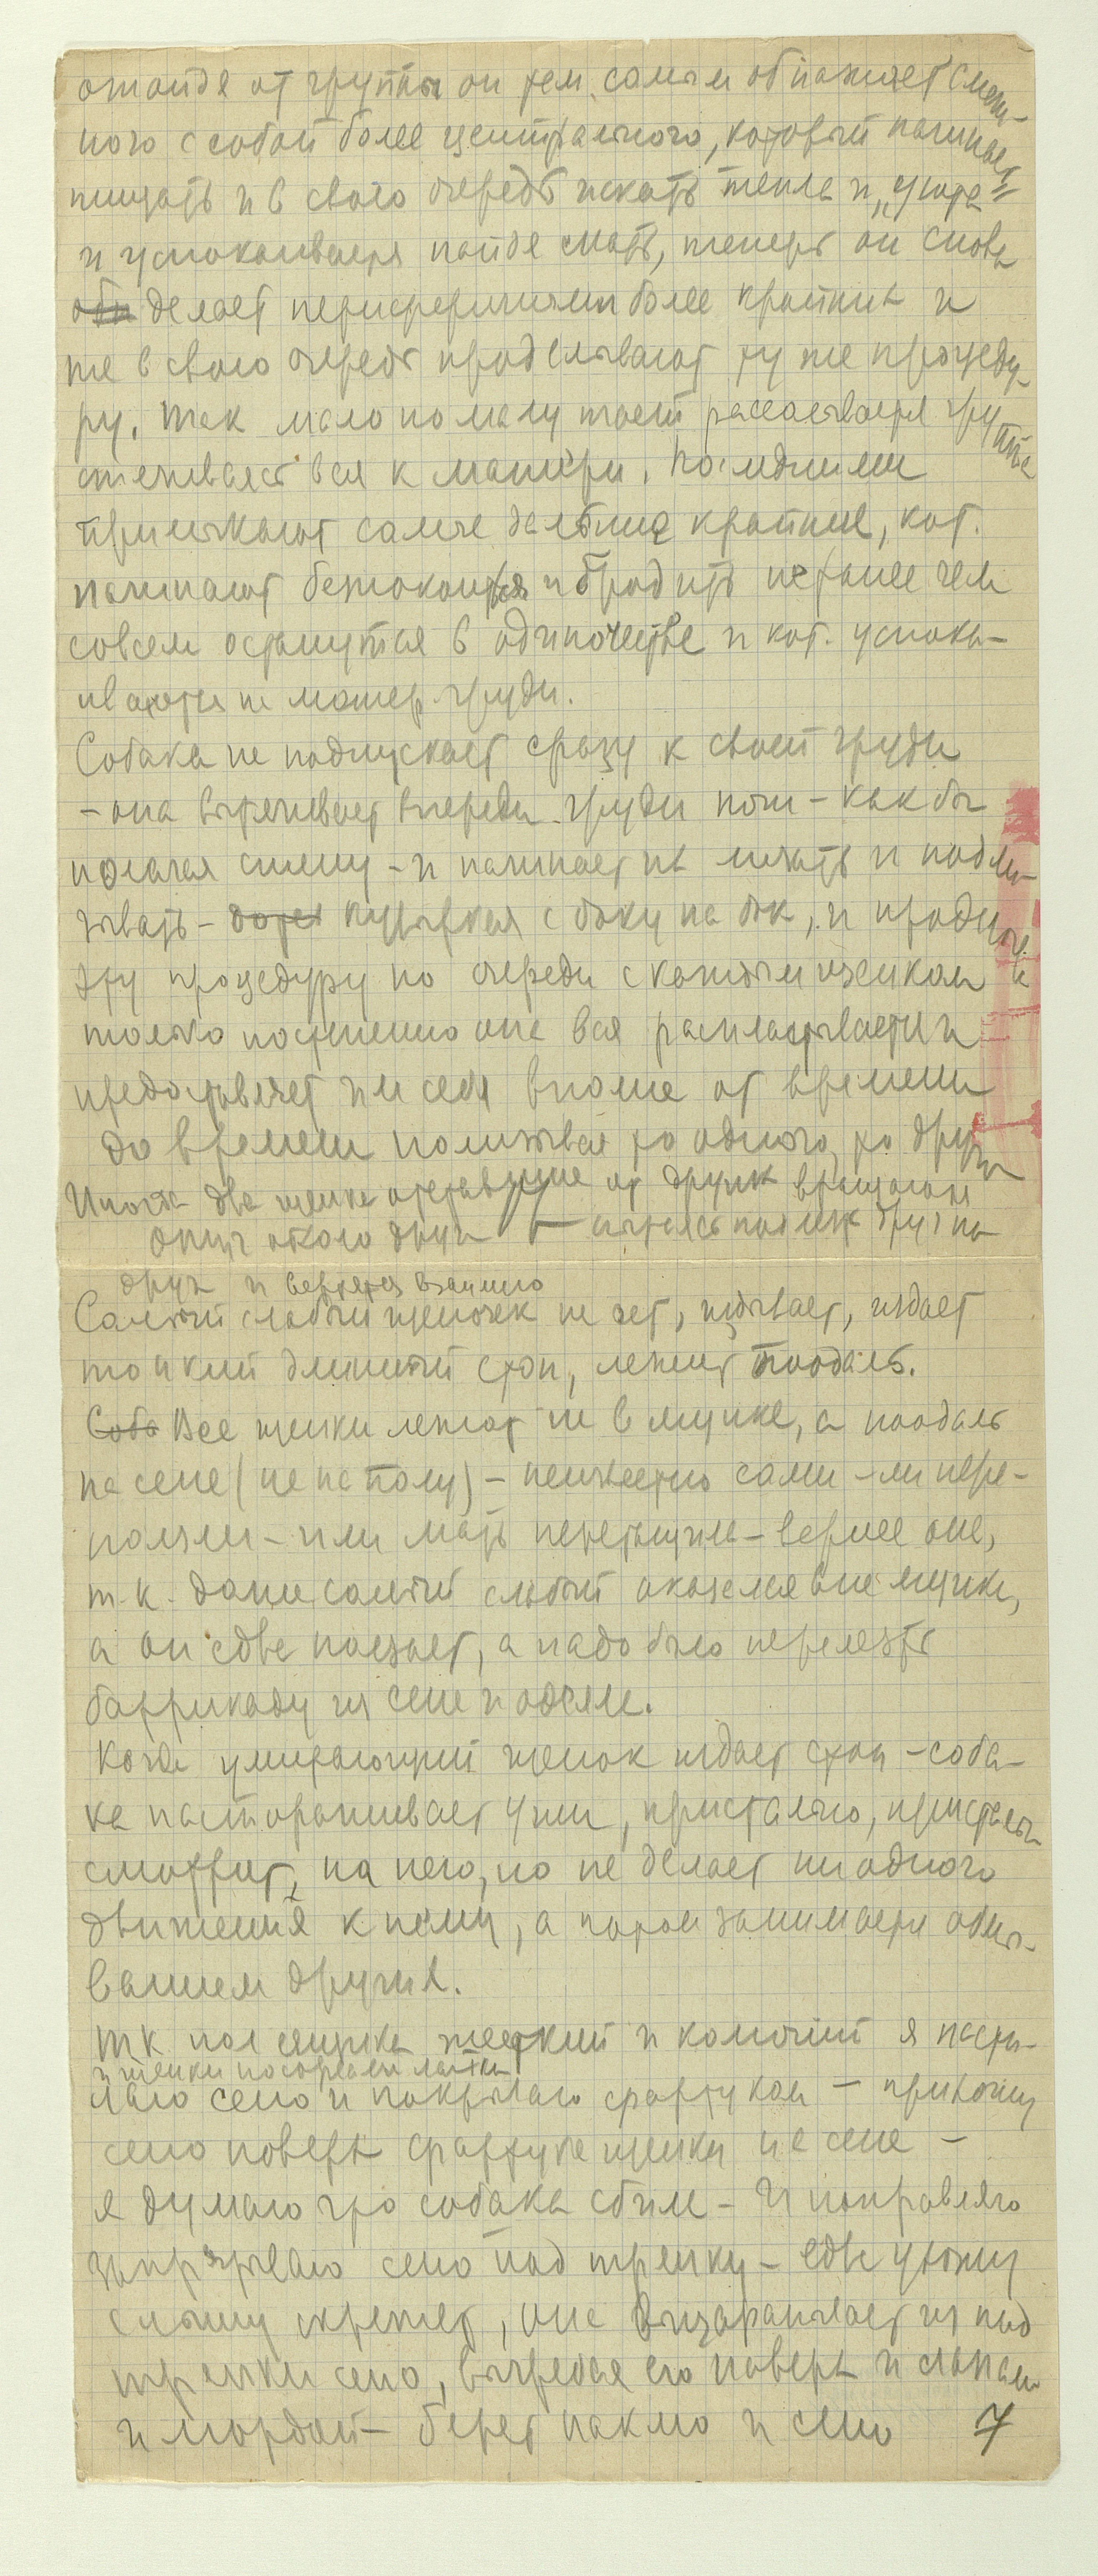 отойдя от группы он тем самым обнажает смеж-
ного с собой более центрального, который начинает
пищать и в свою очередь искать тепла и „угода"
и успокаивается найдя мать, теперь он снова
делает периферичными более крайних и
те в свою очередь проделывают ту же процеду-
ру. Так мало по малу тает рассасывается группа
стягивается вся к матери. Последними
примыкают самые дальние крайние, кот.
начинают беспокоиться и бродить не ранее чем
совсем остынутся в одиночестве и кот. успока-
иваются на матер. груди.
Собака не подпускает сразу к своей груди
– она вытягивает впереди груди ноги – как бы
полагая стену – и начинает их лизать и подли-
зывать – пузыркая с боку на бок, и проделыв.
эту процедуру по очереди с каждым щенком и
только постепенно она вся распластывается и
предоставляет им себя вполне от времени
до времени полизывая то одного, то другого
Иногда два щенка отставшие от других вращаются
друг около друга – пытаясь полезть друг на
друга и вертятся взаимно
Самый слабый щеночек не ест, издает
тонкий длинный стон, лежит поодаль.
Соба Все щенки лежат не в ящике, а поодаль
на сене (не на полу) – неизвестно сами-ли пере-
ползли – или мать перетащила – вернее она,
т.к. даже самый слабый оказался вне ящика,
а он едва ползает, а надо было перелезть
баррикаду из сена и одеяла.
Когда умирающий щенок издает стон – соба-
ка настораживает уши, пристально, пристально
смотрит на него, но не делает ни одного
движения к нему, а потом занимается облы-
ванием других.
Т.К. пол ящика жесткий и колючий я насти-
и щенки посорвали
лаю сено и покрываю фартуком – прихожу
сено поверх фартука щенки на сене –
я думаю что собака сбила – и поправляю
запрятываю сено под тряпку – едва ухожу
слышу скрежет, она выцарапывает из под
тряпки сено, выгребая его поверх и лапами
и мордой – берет паклю и сено 7